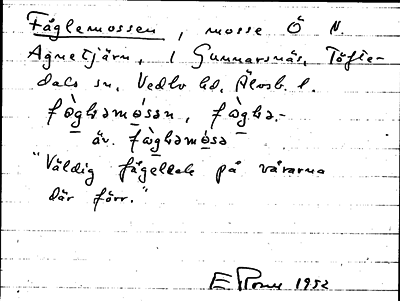 Fåglemossen, mosse Ö N.
Agnetjärn, i Gunnarsnäs, Töfte-
dals sn, Vedbo hd, Älvsb. l.
fò̀gləmósən, fò̀glə-
äv. fò̀gləmósə
"Väldig fågellek på vårarna
där förr."
1952